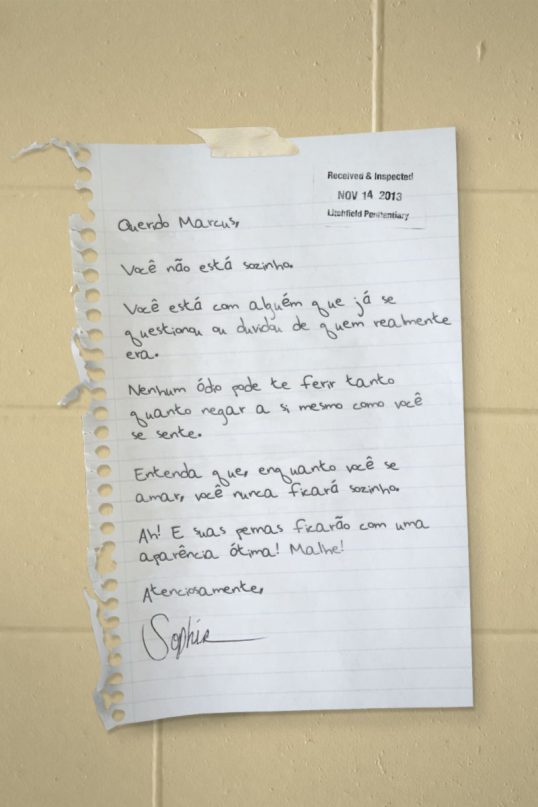 Received & Inspected
NOV 14 2013
Litchfield Penitentiary
Querido Marcus,
Você não está sozinho.
Você está com alguém que já se
questionou ou duvidou de quem realmente
era.
Nenhum ódio pode te ferir tanto
quanto negar a si mesmo como você
se sente.
Entenda que, enquanto você se
amar, você nunca ficará sozinho.
Ah! E suas pernas ficarão com uma
aparência ótima! Malhe!
Atenciosamente,
Sophia